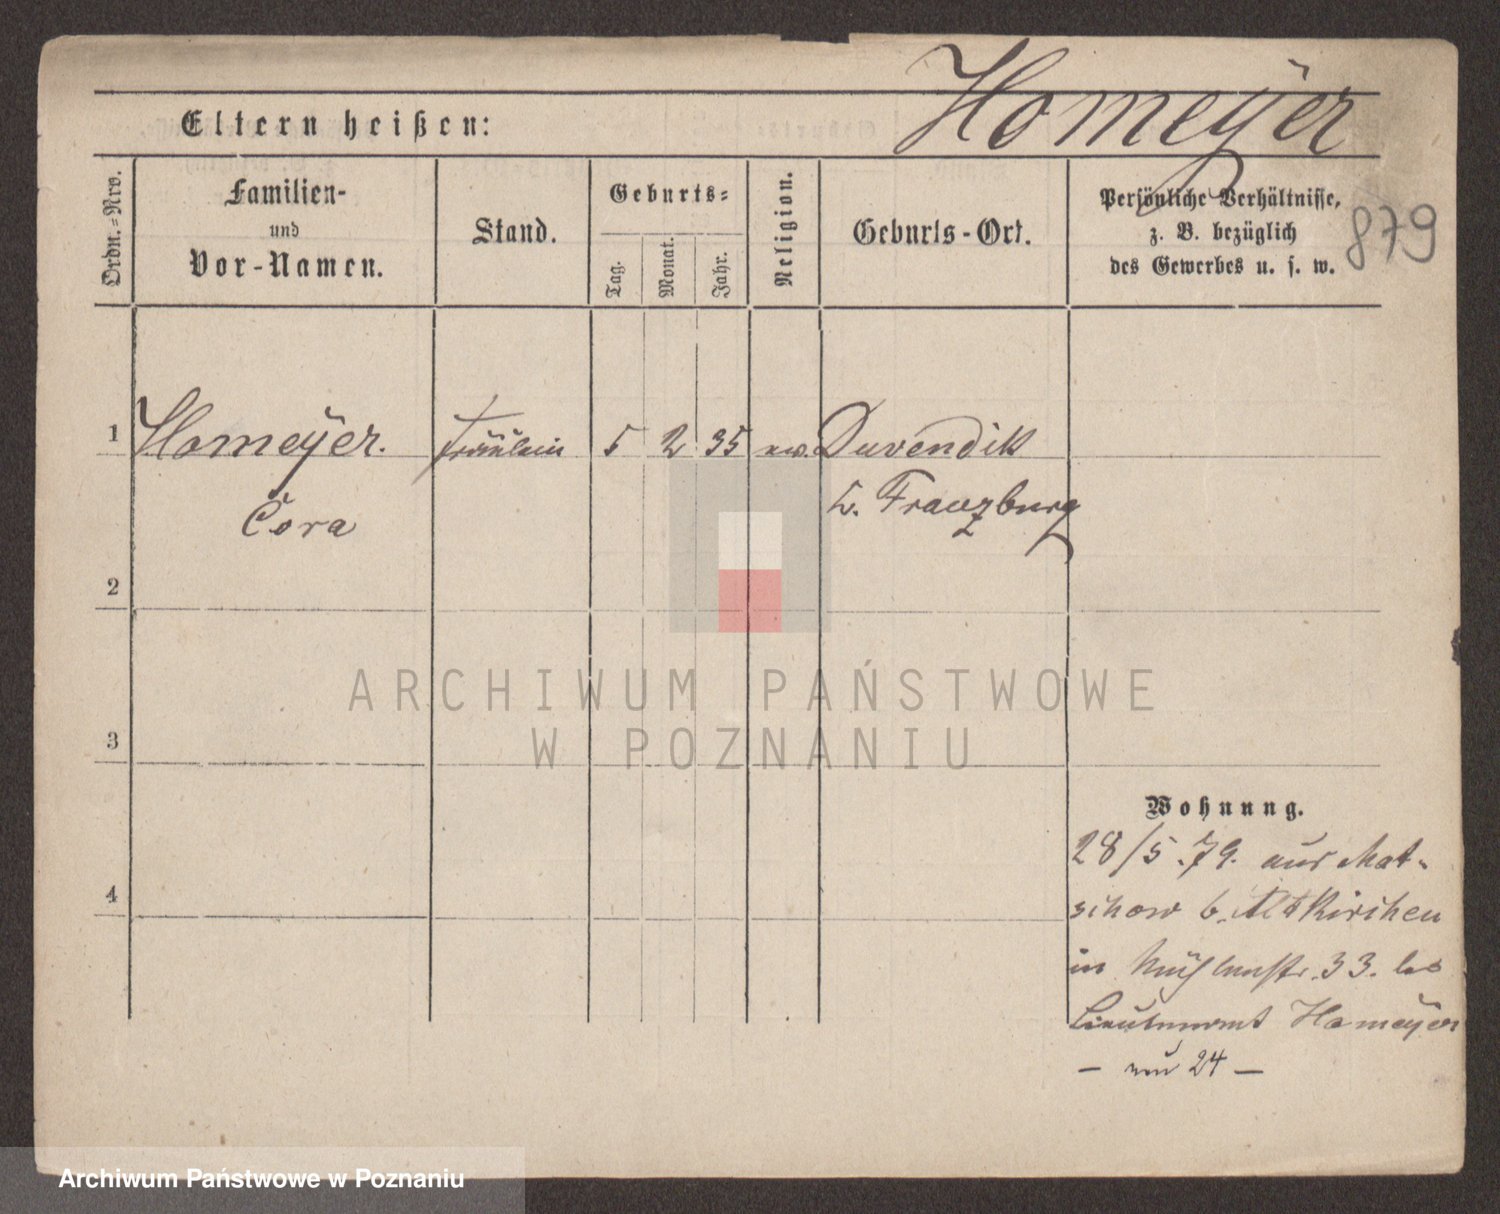 Homeÿer
Eltern heißen:
879
Ordn.-Nro.
Familien-
und
Vor-Namen.
Stand.
Geburts-
Tag.
Monat.
Jahr.
Religion.
Geburts-Ort.
Persönliche Verhältnisse,
z. B. bezüglich
des Gewerbes u. s. w.
1 Homeÿer. Fräulein 5 2 35 ev. Duvendik
Cora
Franzburg
2
3
4
Wohnung.
28/5.79. aus Mat-
schow b. Altkirchen
in Mühlenstr. 33. bei
Lieutenant Homeÿer
24 —
ARCHIWUM PAŃSTWOWE
W POZNANIU
Archiwum Państwowe w Poznaniu